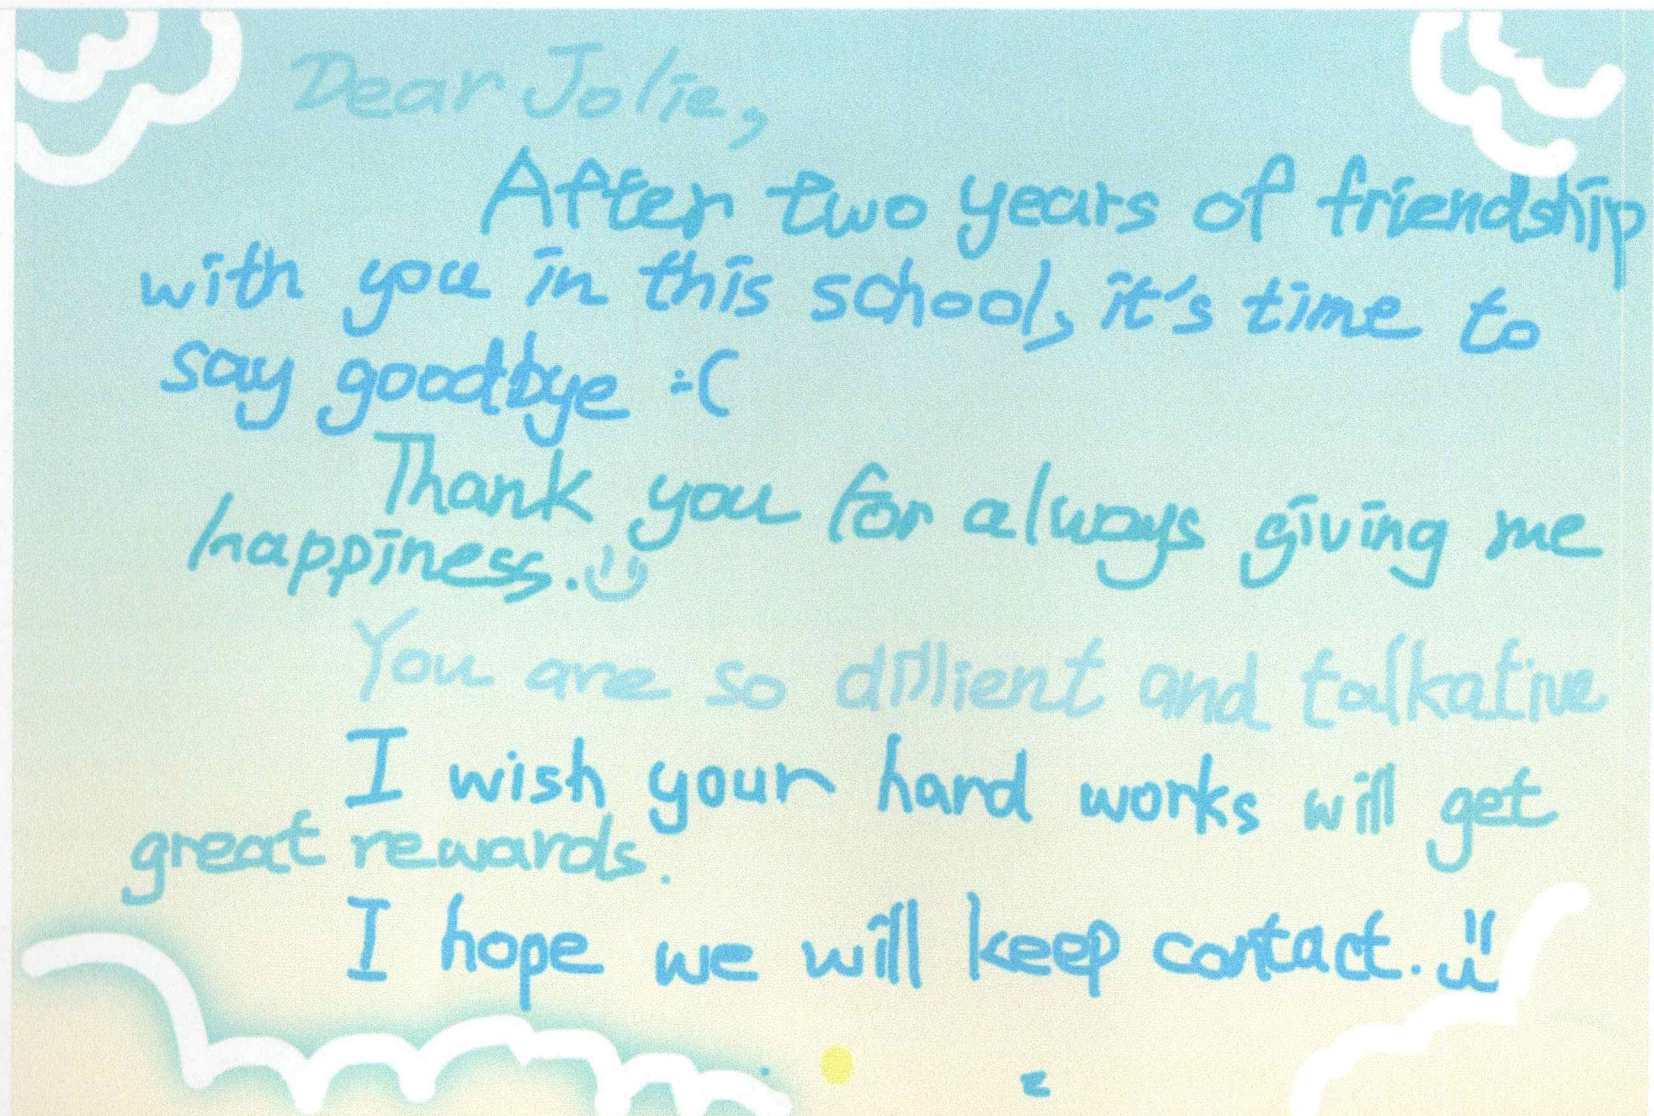 Dear Jolie,
After two years of friendship
with you in this school, it's time to
say goodbye :(
Thank you for always giving me
happiness.
You are so dillient and talkative
I wish your hard works will get
great rewards.
I hope we will keep contact.